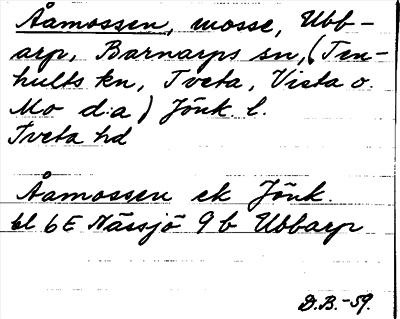 Åamossen, mosse, Ubb-
arp, Barnarps sn, (Ten-
hults kn, Tveta, Vista o.
Mo d:a) Jönk. l.
Tveta hd
Åamossen ek Jönk.
bl 6E Nässjö 9b Ubbarp
D.B.-59.